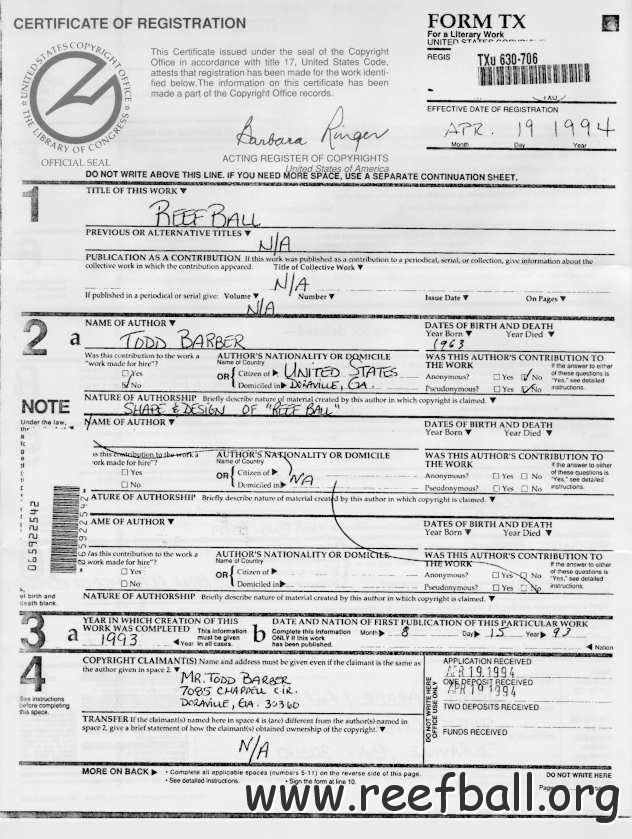 CERTIFICATE OF REGISTRATION
FORM TX
For a Literary Work
UNITED STATES COPYRIGHT
REGIS
TXu 630-706
TXU
EFFECTIVE DATE OF REGISTRATION
APR. 19 1994
Month Day Year
This Certificate issued under the seal of the Copyright
Office in accordance with title 17, United States Code,
attests that registration has been made for the work identi-
fied below. The information on this certificate has been
made a part of the Copyright Office records.
UNITED STATES COPYRIGHT OFFICE
THE LIBRARY OF CONGRESS
OFFICIAL SEAL
Barbara Ringer
ACTING REGISTER OF COPYRIGHTS
United States of America
DO NOT WRITE ABOVE THIS LINE. IF YOU NEED MORE SPACE, USE A SEPARATE CONTINUATION SHEET.
1
TITLE OF THIS WORK ▼
REEF BALL
PREVIOUS OR ALTERNATIVE TITLES ▼
N/A
PUBLICATION AS A CONTRIBUTION If this work was published as a contribution to a periodical, serial, or collection, give information about the
collective work in which the contribution appeared. Title of Collective Work ▼
N/A
If published in a periodical or serial give: Volume ▼ Number ▼ Issue Date ▼ On Pages ▼
N/A
2
a
NAME OF AUTHOR ▼
TODD BARBER
DATES OF BIRTH AND DEATH
Year Born ▼ Year Died ▼
1963
Was this contribution to the work a
"work made for hire"?
Yes
No
AUTHOR'S NATIONALITY OR DOMICILE
Name of Country
OR { Citizen of ▶ UNITED STATES
Domiciled in ▶ DORAVILLE, GA.
WAS THIS AUTHOR'S CONTRIBUTION TO
THE WORK
Anonymous? Yes No
Pseudonymous? Yes No
If the answer to either
of these questions is
"Yes," see detailed
instructions.
NATURE OF AUTHORSHIP Briefly describe nature of material created by this author in which copyright is claimed. ▼
SHAPE & DESIGN OF "REEF BALL"
NOTE
Under the law,
NAME OF AUTHOR ▼
DATES OF BIRTH AND DEATH
Year Born ▼ Year Died ▼
is this contribution to the work a
work made for hire"?
Yes
No
AUTHOR'S NATIONALITY OR DOMICILE
Name of Country
OR { Citizen of ▶
Domiciled in ▶ N/A
WAS THIS AUTHOR'S CONTRIBUTION TO
THE WORK
Anonymous? Yes No
Pseudonymous? Yes No
If the answer to either
of these questions is
"Yes," see detailed
instructions.
ATURE OF AUTHORSHIP Briefly describe nature of material created by this author in which copyright is claimed. ▼
AME OF AUTHOR ▼
DATES OF BIRTH AND DEATH
Year Born ▼ Year Died ▼
this contribution to the work a
work made for hire"?
Yes
No
AUTHOR'S NATIONALITY OR DOMICILE
Name of Country
OR { Citizen of ▶
Domiciled in ▶
WAS THIS AUTHOR'S CONTRIBUTION TO
THE WORK
Anonymous? Yes No
Pseudonymous? Yes No
If the answer to either
of these questions is
"Yes," see detailed
instructions.
of birth and
death blank.
NATURE OF AUTHORSHIP Briefly describe nature of material created by this author in which copyright is claimed. ▼
3
a
YEAR IN WHICH CREATION OF THIS
WORK WAS COMPLETED
1993 ◀ Year
This information
must be given
in all cases.
b
DATE AND NATION OF FIRST PUBLICATION OF THIS PARTICULAR WORK
Complete this information
ONLY if this work
has been published.
Month ▶ 8 Day ▶ 15 Year ▶ 93
◀ Nation
4
See instructions
before completing
this space.
COPYRIGHT CLAIMANT(S) Name and address must be given even if the claimant is the same as
the author given in space 2. ▼
MR. TODD BARBER
7085 CHAPPELL CIR.
DORAVILLE, GA. 30360
TRANSFER If the claimant(s) named here in space 4 is (are) different from the author(s) named in
space 2, give a brief statement of how the claimant(s) obtained ownership of the copyright. ▼
N/A
DO NOT WRITE HERE
OFFICE USE ONLY
APPLICATION RECEIVED
APR 19.1994
ONE DEPOSIT RECEIVED
APR 19 1994
TWO DEPOSITS RECEIVED
FUNDS RECEIVED
MORE ON BACK ▶
• Complete all applicable spaces (numbers 5-11) on the reverse side of this page.
• See detailed instructions. • Sign the form at line 10.
DO NOT WRITE HERE
www.reefball.org